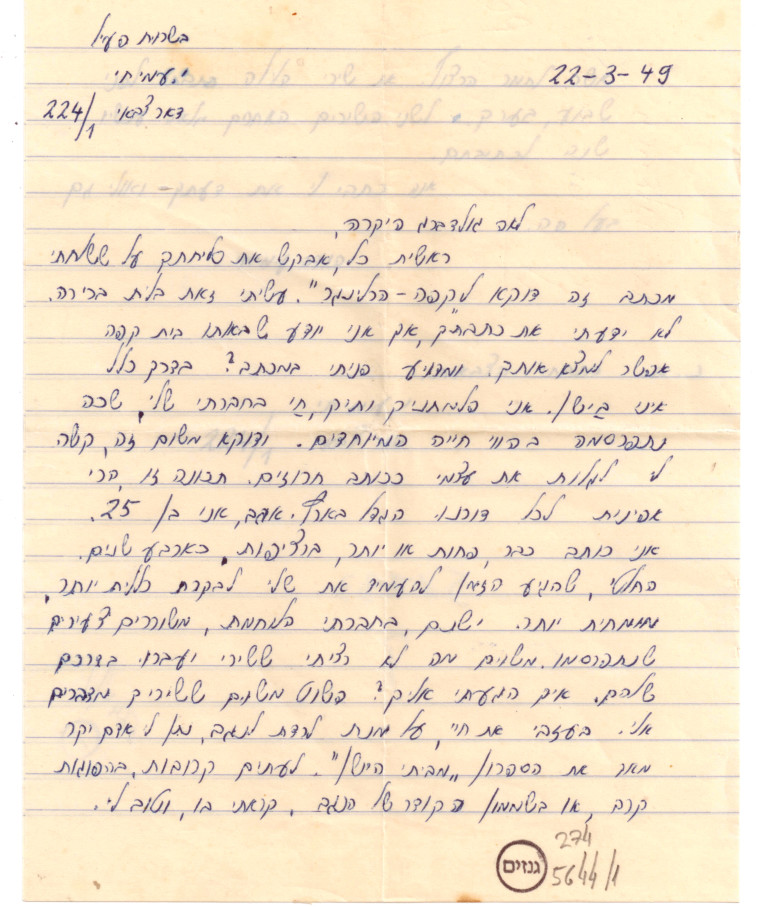 בשרות פעיל
י. עמיחי
22-3-49
דאר צבאי 224/1
לאה גולדברג היקרה,
ראשית כל, אבקש את סליחתך על ששלחתי
מכתב זה דוקא ל„קפה-הרלינגר". עשיתי זאת בלית ברירה.
לא ידעתי את כתבתך, אך אני יודע שבאותו בית קפה
אפשר למצא אותך. ומדוע פניתי במכתב? בדרך כלל
איני ביישן. אני פלמחניק ותיק, חי בחברתי שלי, שכה
נתפרסמה בהווי חייה המיוחדים. ודוקא משום זה, קשה
לי לגלות את עצמי ככותב חרוזים. תכונה זו, הרי
אפינית לכל דורנו הגדל בארץ. אגב, אני בן 25.
אני כותב כבר, פחות או יותר, ברציפות, כארבע שנים.
החלטתי, שהגיע הזמן להעמיד את שלי לבקרת כללית יותר,
מומחית יותר. ישנם, בחברתי הלוחמת, משוררים צעירים
שנתפרסמו. משום מה לא רציתי ששירי יעברו בדרכם
שלהם. איך הגעתי אליך? פשוט משום ששיריך מדברים
אלי. בעזבי את חיי, על מנת לרדת לנגב, נתן לי אדם יקר
מאד את הספרון „מביתי הישן". לעתים קרובות, בהפוגות
קרב, או בשממון הקודר של הנגב, קראתי בו, וטוב לי.
גנזים
274
5644/1